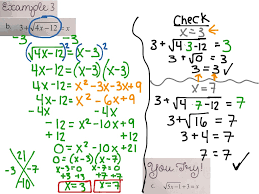 Example 3
b. 3+√4x-12 = x
-3 -3
(√4x-12)² = (x-3)²
4x-12 = (x-3)(x-3)
4x-12 = x²-3x-3x+9
4x-12 = x²-6x+9
-4x -4x
-12 = x²-10x+9
+12 +12
0 = x²-10x+21
0 = (x-3)(x-7)
x-3=0 x-7=0
+3 +3 +7 +7
x=3 x=7
21
-3 -7
-10
Check
x=3
3+√4·3-12 = 3
3+√0 = 3
3 = 3 ✓
x=7
3+√4·7-12 = 7
3+√16 = 7
3+4 = 7
7 = 7 ✓
You Try!
c. √5x-1+3 = x